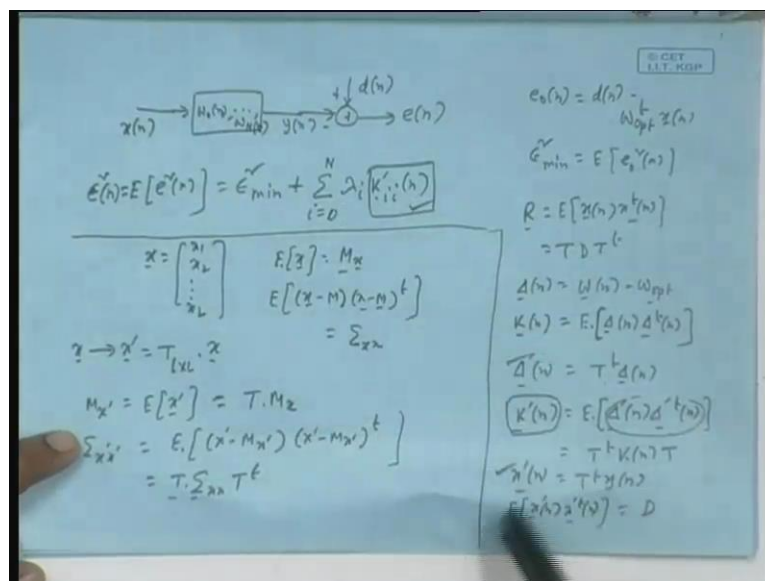 © CET
I.I.T. KGP
x(n) y(n) - + d(n) + e(n)
ε²(n) = E[e²(n)] = ε²min + Σ_{i=0}^{N} λi k'ii(n)
x = [x1 x2 ⋮ xL] E[x] = Mx
E[(x-M)(x-M)^t]
= Σxx
x → x' = T_{LxL} . x
Mx' = E[x'] = T.Mx
Σx'x' = E.[(x'-Mx') (x'-Mx')^t]
= T.Σxx T^t
e0(n) = d(n) -
w^t_opt x(n)
ε²min = E[e0²(n)]
R = E[x(n)x^t(n)]
= T D T^t
Δ(n) = w(n) - w_opt
K(n) = E.[Δ(n)Δ^t(n)]
Δ'(n) = T^t Δ(n)
K'(n) = E.[Δ'(n)Δ'^t(n)]
= T^t K(n) T
x'(n) = T^t x(n)
E[x'(n) x'^t(n)] = D